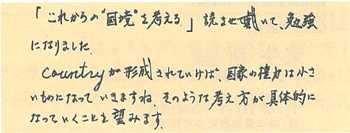 「これからの"国境"を考える」読ませ戴いて、勉強
になりました.
countryが形成されていけば、国家の権力は小さ
いものになっていきますね. そのような考え方が具体的に
なっていくことを望みます.